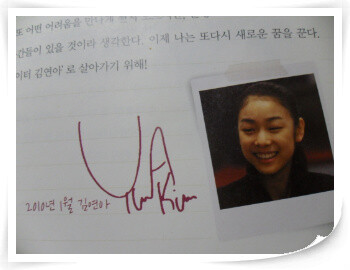 또 어떤 어려움을 만나게
간들이 있을 것이라 생각한다. 이제 나는 또다시 새로운 꿈을 꾼다.
이터 김연아’로 살아가기 위해!
Yuna Kim
2010년 1월 김연아